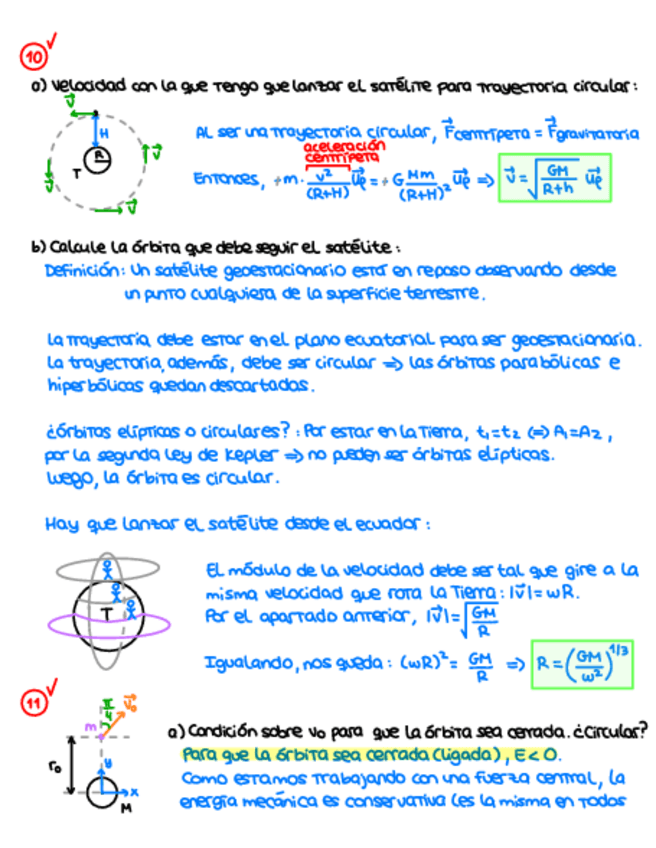 10
a) Velocidad con la que tengo que lanzar el satélite para trayectoria circular:
Al ser una trayectoria circular, F⃗centrípeta = F⃗gravitatoria
aceleración
centrípeta
Entonces, +m · v²/(R+H) u⃗ρ = + G Mm/(R+H)² u⃗ρ ⇒ v⃗ = √(GM/(R+h)) u⃗ρ
v⃗
H
R
T
v⃗
v⃗
v⃗
b) Calcule la órbita que debe seguir el satélite:
Definición: Un satélite geoestacionario está en reposo observando desde
un punto cualquiera de la superficie terrestre.
La trayectoria debe estar en el plano ecuatorial para ser geoestacionaria.
La trayectoria, además, debe ser circular ⇒ las órbitas parabólicas e
hiperbólicas quedan descartadas.
¿órbitas elípticas o circulares?: Por estar en la Tierra, t₁=t₂ ⇔ A₁=A₂,
por la segunda ley de Kepler ⇒ no pueden ser órbitas elípticas.
Luego, la órbita es circular.
Hay que lanzar el satélite desde el ecuador:
T
El módulo de la velocidad debe ser tal que gire a la
misma velocidad que rota la Tierra: |v⃗| = ωR.
Por el apartado anterior, |v⃗| = √(GM/R)
Igualando, nos queda: (ωR)² = GM/R ⇒ R = (GM/ω²)^1/3
11
π/4
v⃗₀
m
r₀
y
x
M
a) Condición sobre v₀ para que la órbita sea cerrada. ¿Circular?
Para que la órbita sea cerrada (ligada), E < 0.
Como estamos trabajando con una fuerza central, la
energía mecánica es conservativa (es la misma en todos